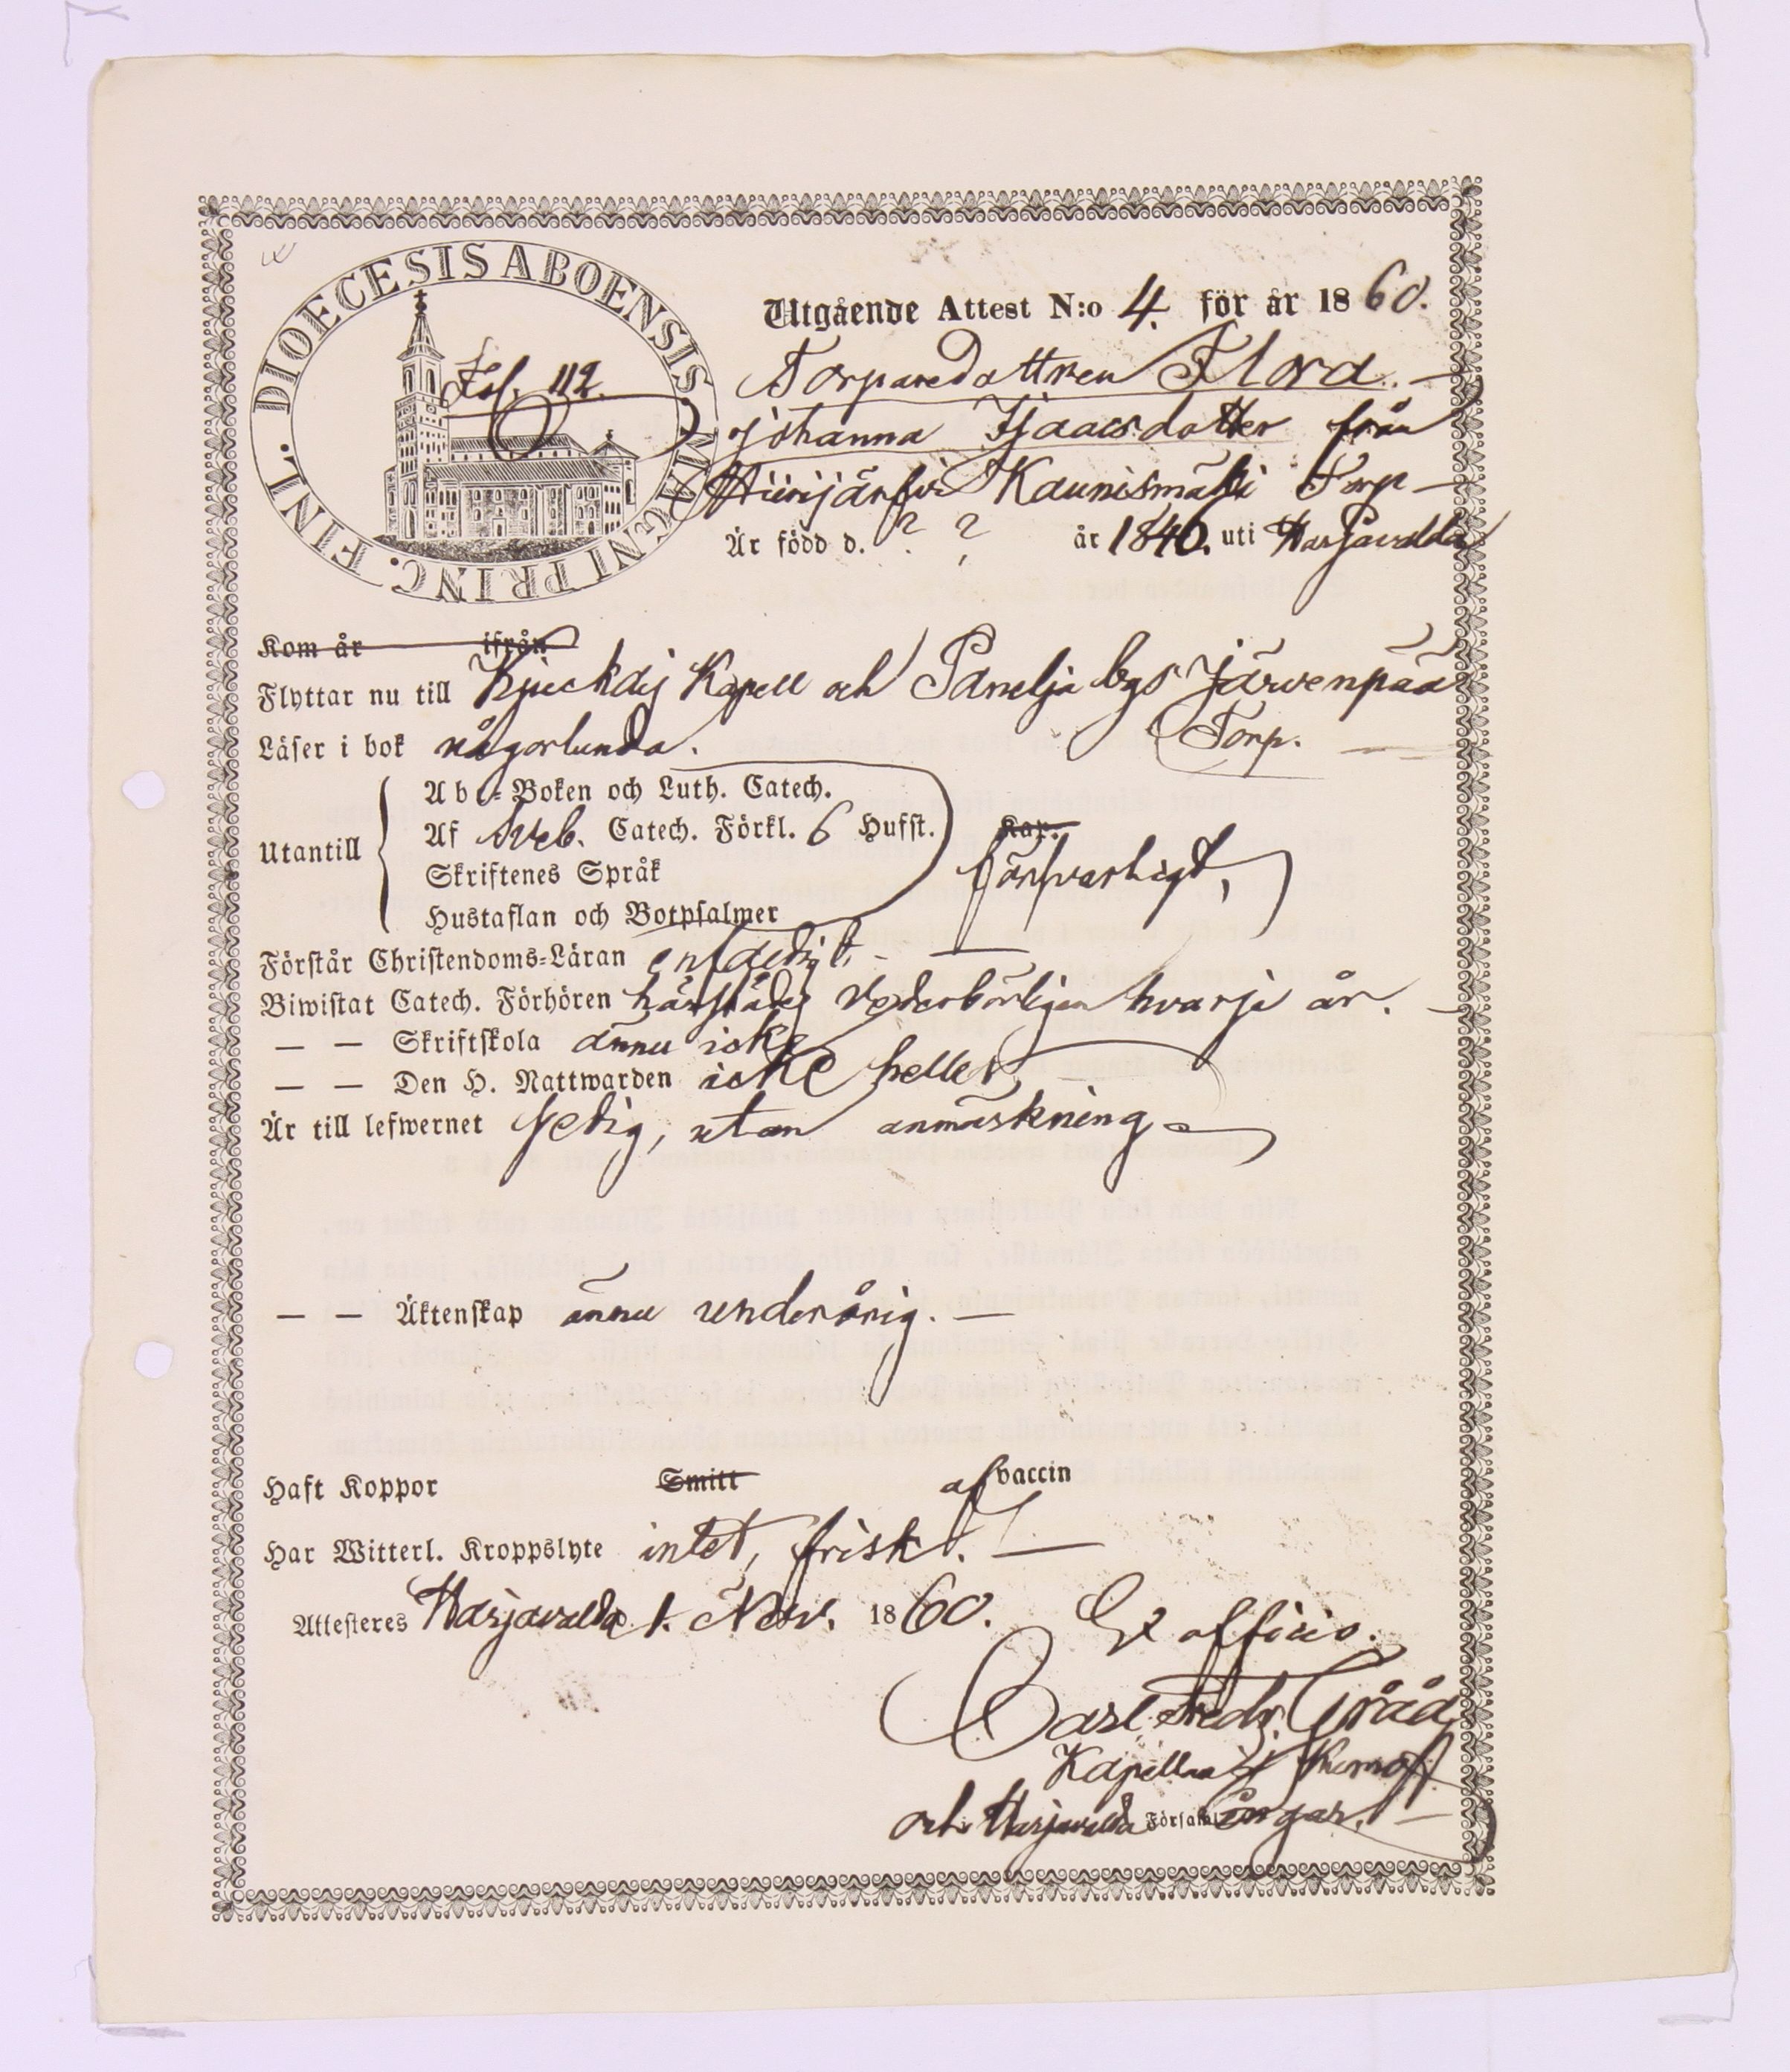 DIOECESIS ABOENSIS MAGNI PRINC. FINL.
Fol. 112.
Utgående Attest N:o 4. för år 1860.
Torparedottren Flora
Johanna Isaacsdotter från
Hiirijärfvi Kaunismäki Torp
Är född d. ? ? år 1846. uti Harjavalda
Kom år ifrån
Flyttar nu till Kjuckäis Kapell och Panelja bys Järvenpää
Torp.
Läser i bok någorlunda.
Utantill
Abc-Boken och Luth. Catech.
Af Sveb. Catech. Förkl. 6 Hufst. Kap.
Skriftenes Språk
Hustaflan och Botpsalmer
försvarligt,
Förstår Christendoms-Läran enfaldigt.
Biwistat Catech. Förhören härstädes vederbörligen hvarje år.
— — Skriftskola ännu icke
— — Den H. Nattwarden icke heller
Är till lefwernet sedig, utan anmärkning
— — Äktenskap ännu underårig.
Haft Koppor Smitt af vaccin
Har Witterl. Kroppslyte intet, frisk.
Attesteres Harjavalda 1. Nov. 1860. Ex officio.
Carl Fredr. Gråå
Kapellan i Kumo
och Harjavalda Församlingar.